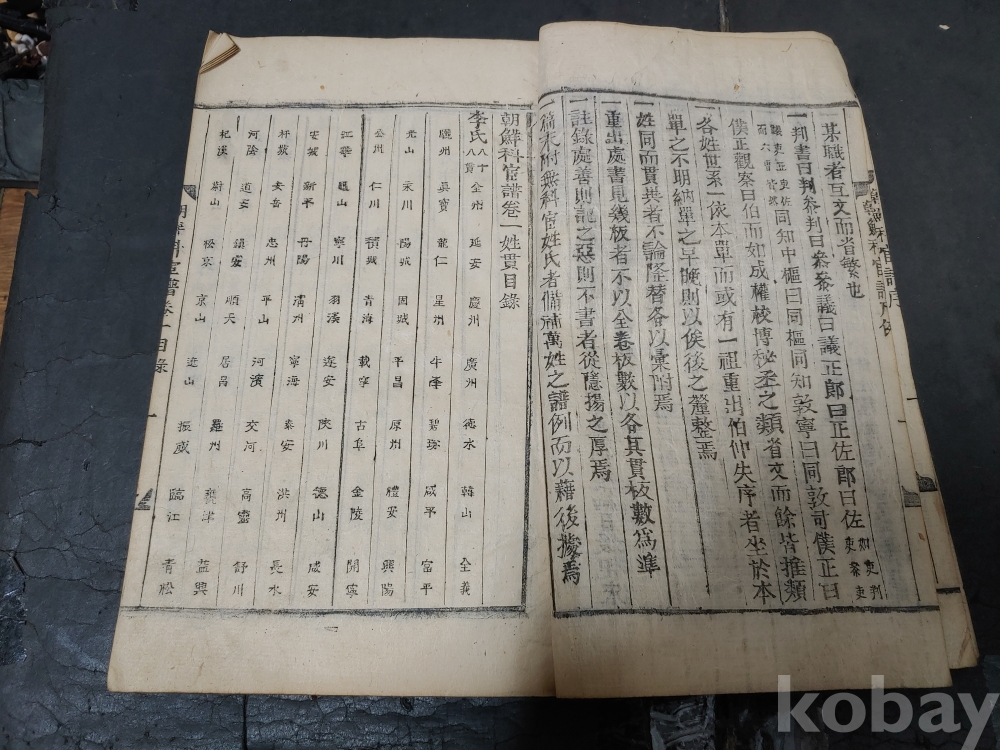 某職者互文而省繁也
一判書曰判叅判曰叅叅議曰議正郎曰正佐郎曰佐
同知中樞曰同樞同知敦寧曰同敦司僕正曰
僕正觀察曰伯而如成權校博秘丞之類省文而餘皆推類
一各姓世系一依本單而或有一祖重出伯仲失序者坐於本
單之不明納單之早晚則以俟後之釐整焉
一姓同而貫共者不論隆替各以彙附焉
一重出處書見幾板者不以全卷板數以各其貫板數爲準
一註錄處善則記之惡則不書者從隱揚之厚焉
一篇末附無科宦姓氏者備補萬姓之譜例而以藉後據焉
朝鮮科宦譜卷一姓貫目錄
李氏 八十八貫 全州 延安 慶州 廣州 德水 韓山 全義
驪州 眞寶 龍仁 星州 牛峯 碧珍 咸平 富平
光山 永川 陽城 固城 平昌 原州 禮安 興陽
公州 仁川 積城 青海 載寧 古阜 金陵 開寧
江華 寧川 羽溪 遂安 陜川 德山 咸安
安城 新平 丹陽 清州 寧海 泰安 洪州 長水
安岳 忠州 平山 河濱 交河 高靈 舒川
河陰 道安 鎮安 順天 居昌 羅州 甕津 益興
杞溪 蔚山 松京 京山 遂山 振威 臨江 青松
朝鮮科宦譜卷一 目錄
kobay